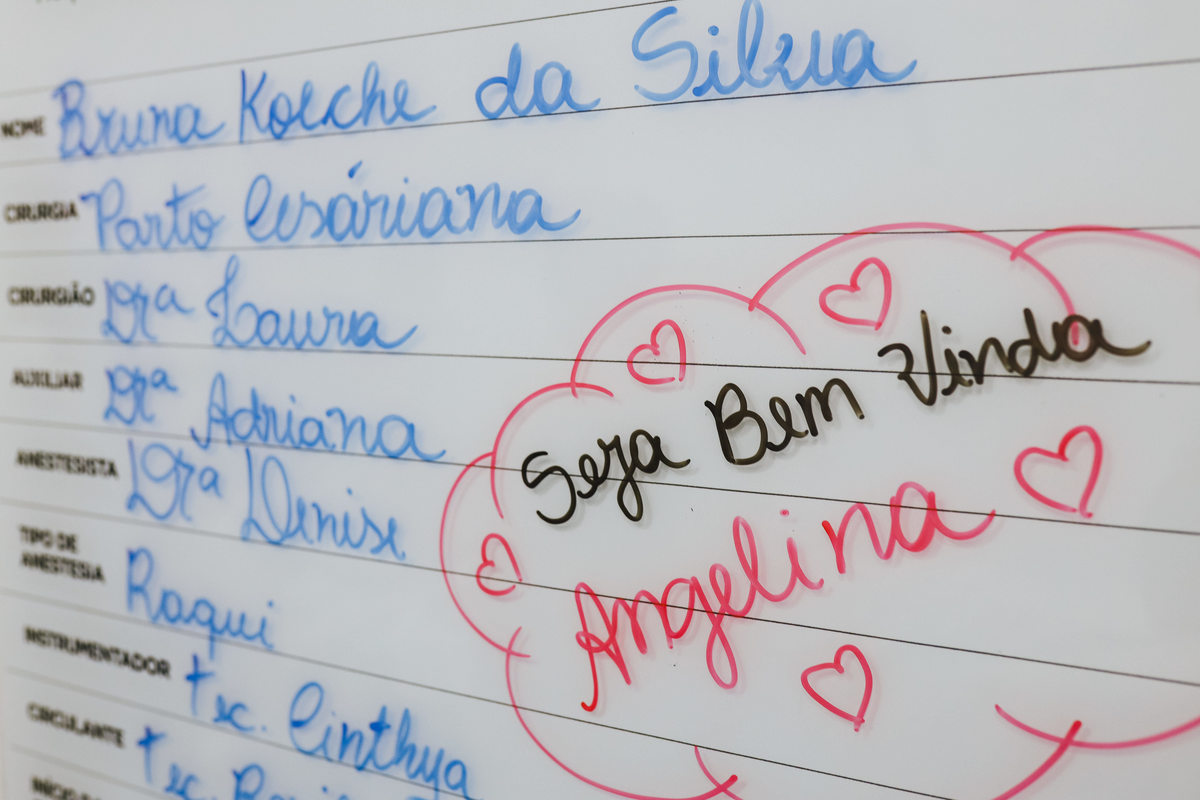 NOME Bruna Koeche da Silva
CIRURGIA Parto Cesáriana
CIRURGIÃO Drª Laura
AUXILIAR Drª Adriana
ANESTESISTA Drª Denise
TIPO DE
ANESTESIA Raqui
INSTRUMENTADOR tec. Cinthya
CIRCULANTE tec.
Seja Bem Vinda
Angelina